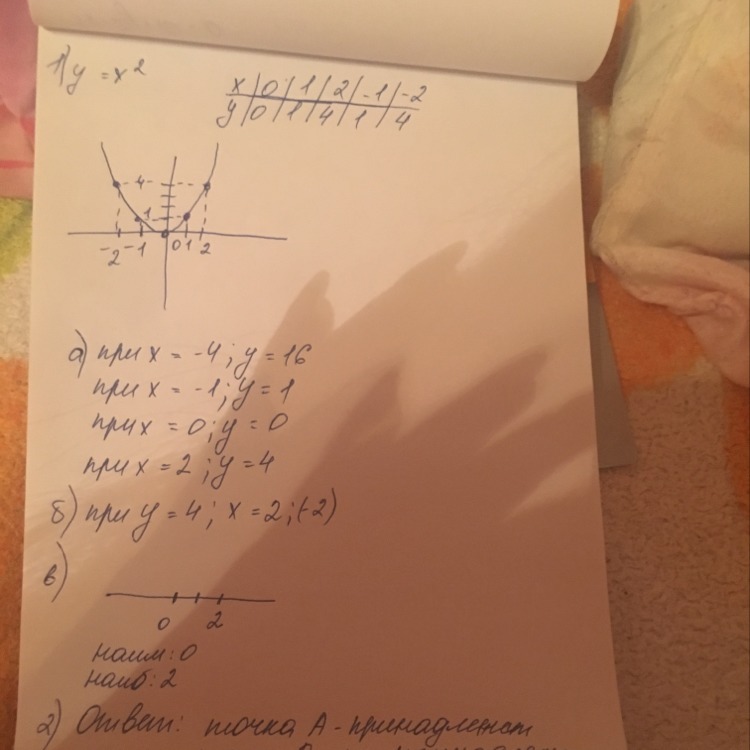 1) y = x²
x | 0 | 1 | 2 | -1 | -2
y | 0 | 1 | 4 | 1 | 4
4
1
-2 -1 0 1 2
а) при x = -4; y = 16
при x = -1; y = 1
при x = 0; y = 0
при x = 2; y = 4
б) при y = 4; x = 2; (-2)
в)
0 2
наим: 0
наиб: 2
2) Ответ: точка А - принадлежит